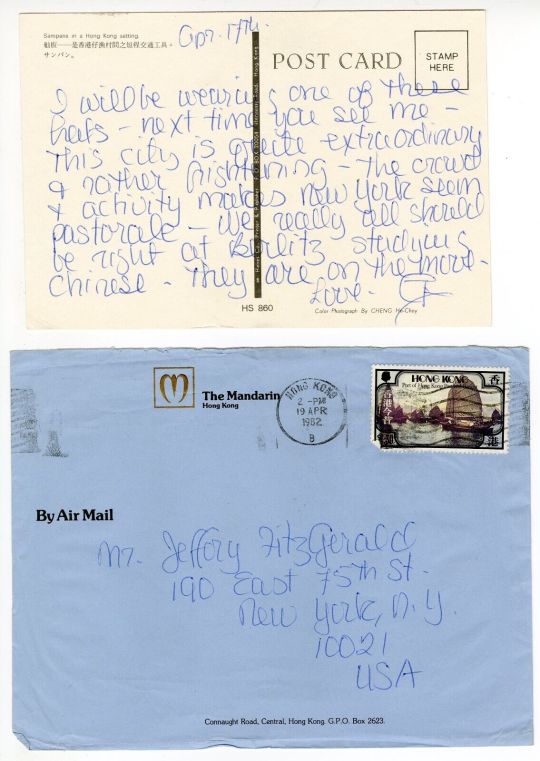 Sampans in a Hong Kong setting.
舢舨——是香港仔漁村間之短程交通工具。
サンパン。
Apr. 17th.
POST CARD
STAMP
HERE
I will be wearing one of these
hats - next time you see me -
This city is quite extraordinary
& rather frightening - the crowd
& activity makes New York seem
pastorale - We really all should
be right at Berlitz studying
Chinese - they are on the move -
Love -
HS 860
Color Photograph By CHENG
The Mandarin
Hong Kong
HONG KONG
2 -PM
19 APR
1982
B
HONG KONG
Port of Hong Kong
香港
By Air Mail
Mr. Jeffory FitzGerald
190 East 75th St.
New York, N.Y.
10021
USA
Connaught Road, Central, Hong Kong. G.P.O. Box 2623.